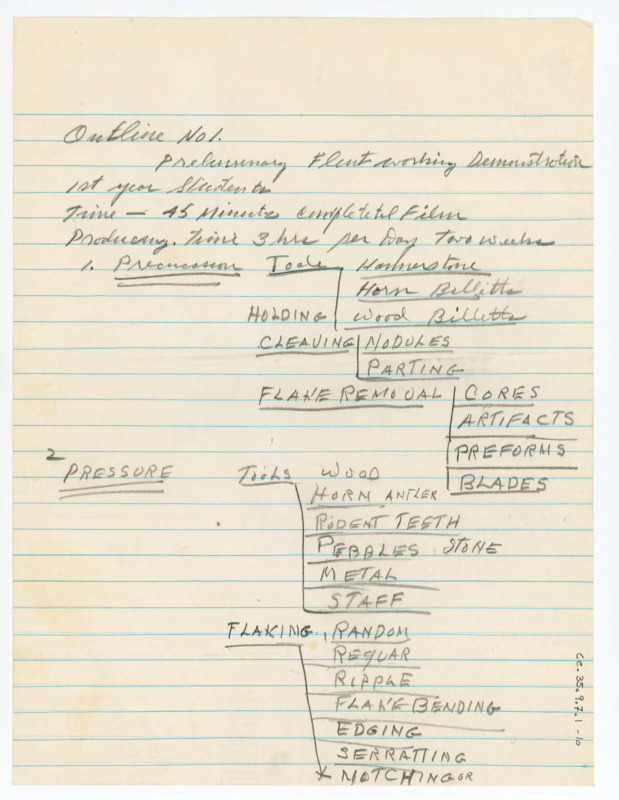 Outline No1.
Preliminary Flint working Demonstration
1st year Students
Time — 45 Minutes completed Film
Producing. time 3 hrs per Day Two weeks
1. Precussion Tools Hammerstone
Horn Billetts
HOLDING Wood Billetts
CLEAVING NODULES
PARTING
FLAKE REMOVAL CORES
ARTIFACTS
PREFORMS
2
PRESSURE Tools WOOD BLADES
HORN ANTLER
RODENT TEETH
PEBBLES STONE
METAL
STAFF
FLAKING, RANDOM
REQUAR
RIPPLE
FLAKE BENDING
EDGING
SERRATTING
NOTCHING OR
CC.35.9.7.1-10